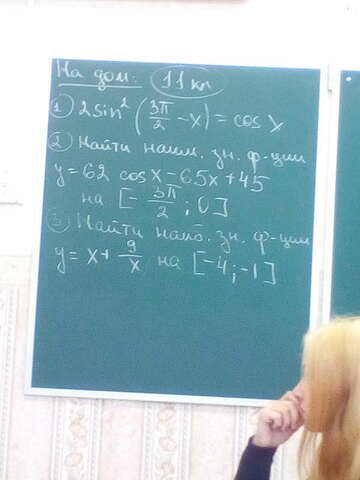 На дом: 11 кл
① 2sin² (3π/2 - x) = cos x
② Найти наим. зн. ф-ции
y = 62 cos x - 65x + 45
на [-3π/2; 0]
③ Найти наиб. зн. ф-ции
y = x + 9/x на [-4; -1]